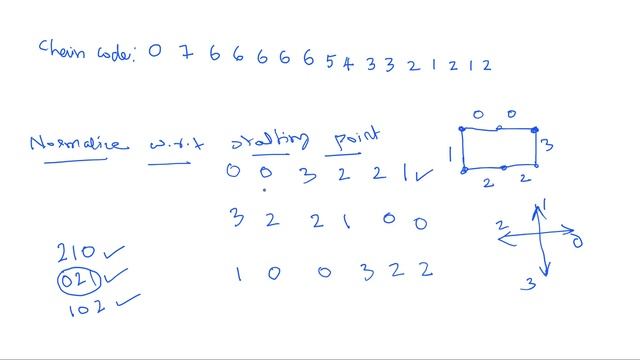 Chain code: 0 7 6 6 6 6 6 5 4 3 3 2 1 2 1 2
Normalize w.r.t starting point
0 0 3 2 2 1 ✓
3 2 2 1 0 0
1 0 0 3 2 2
210 ✓
021 ✓
102 ✓
0 0
1 3
2 2
1
2 0
3